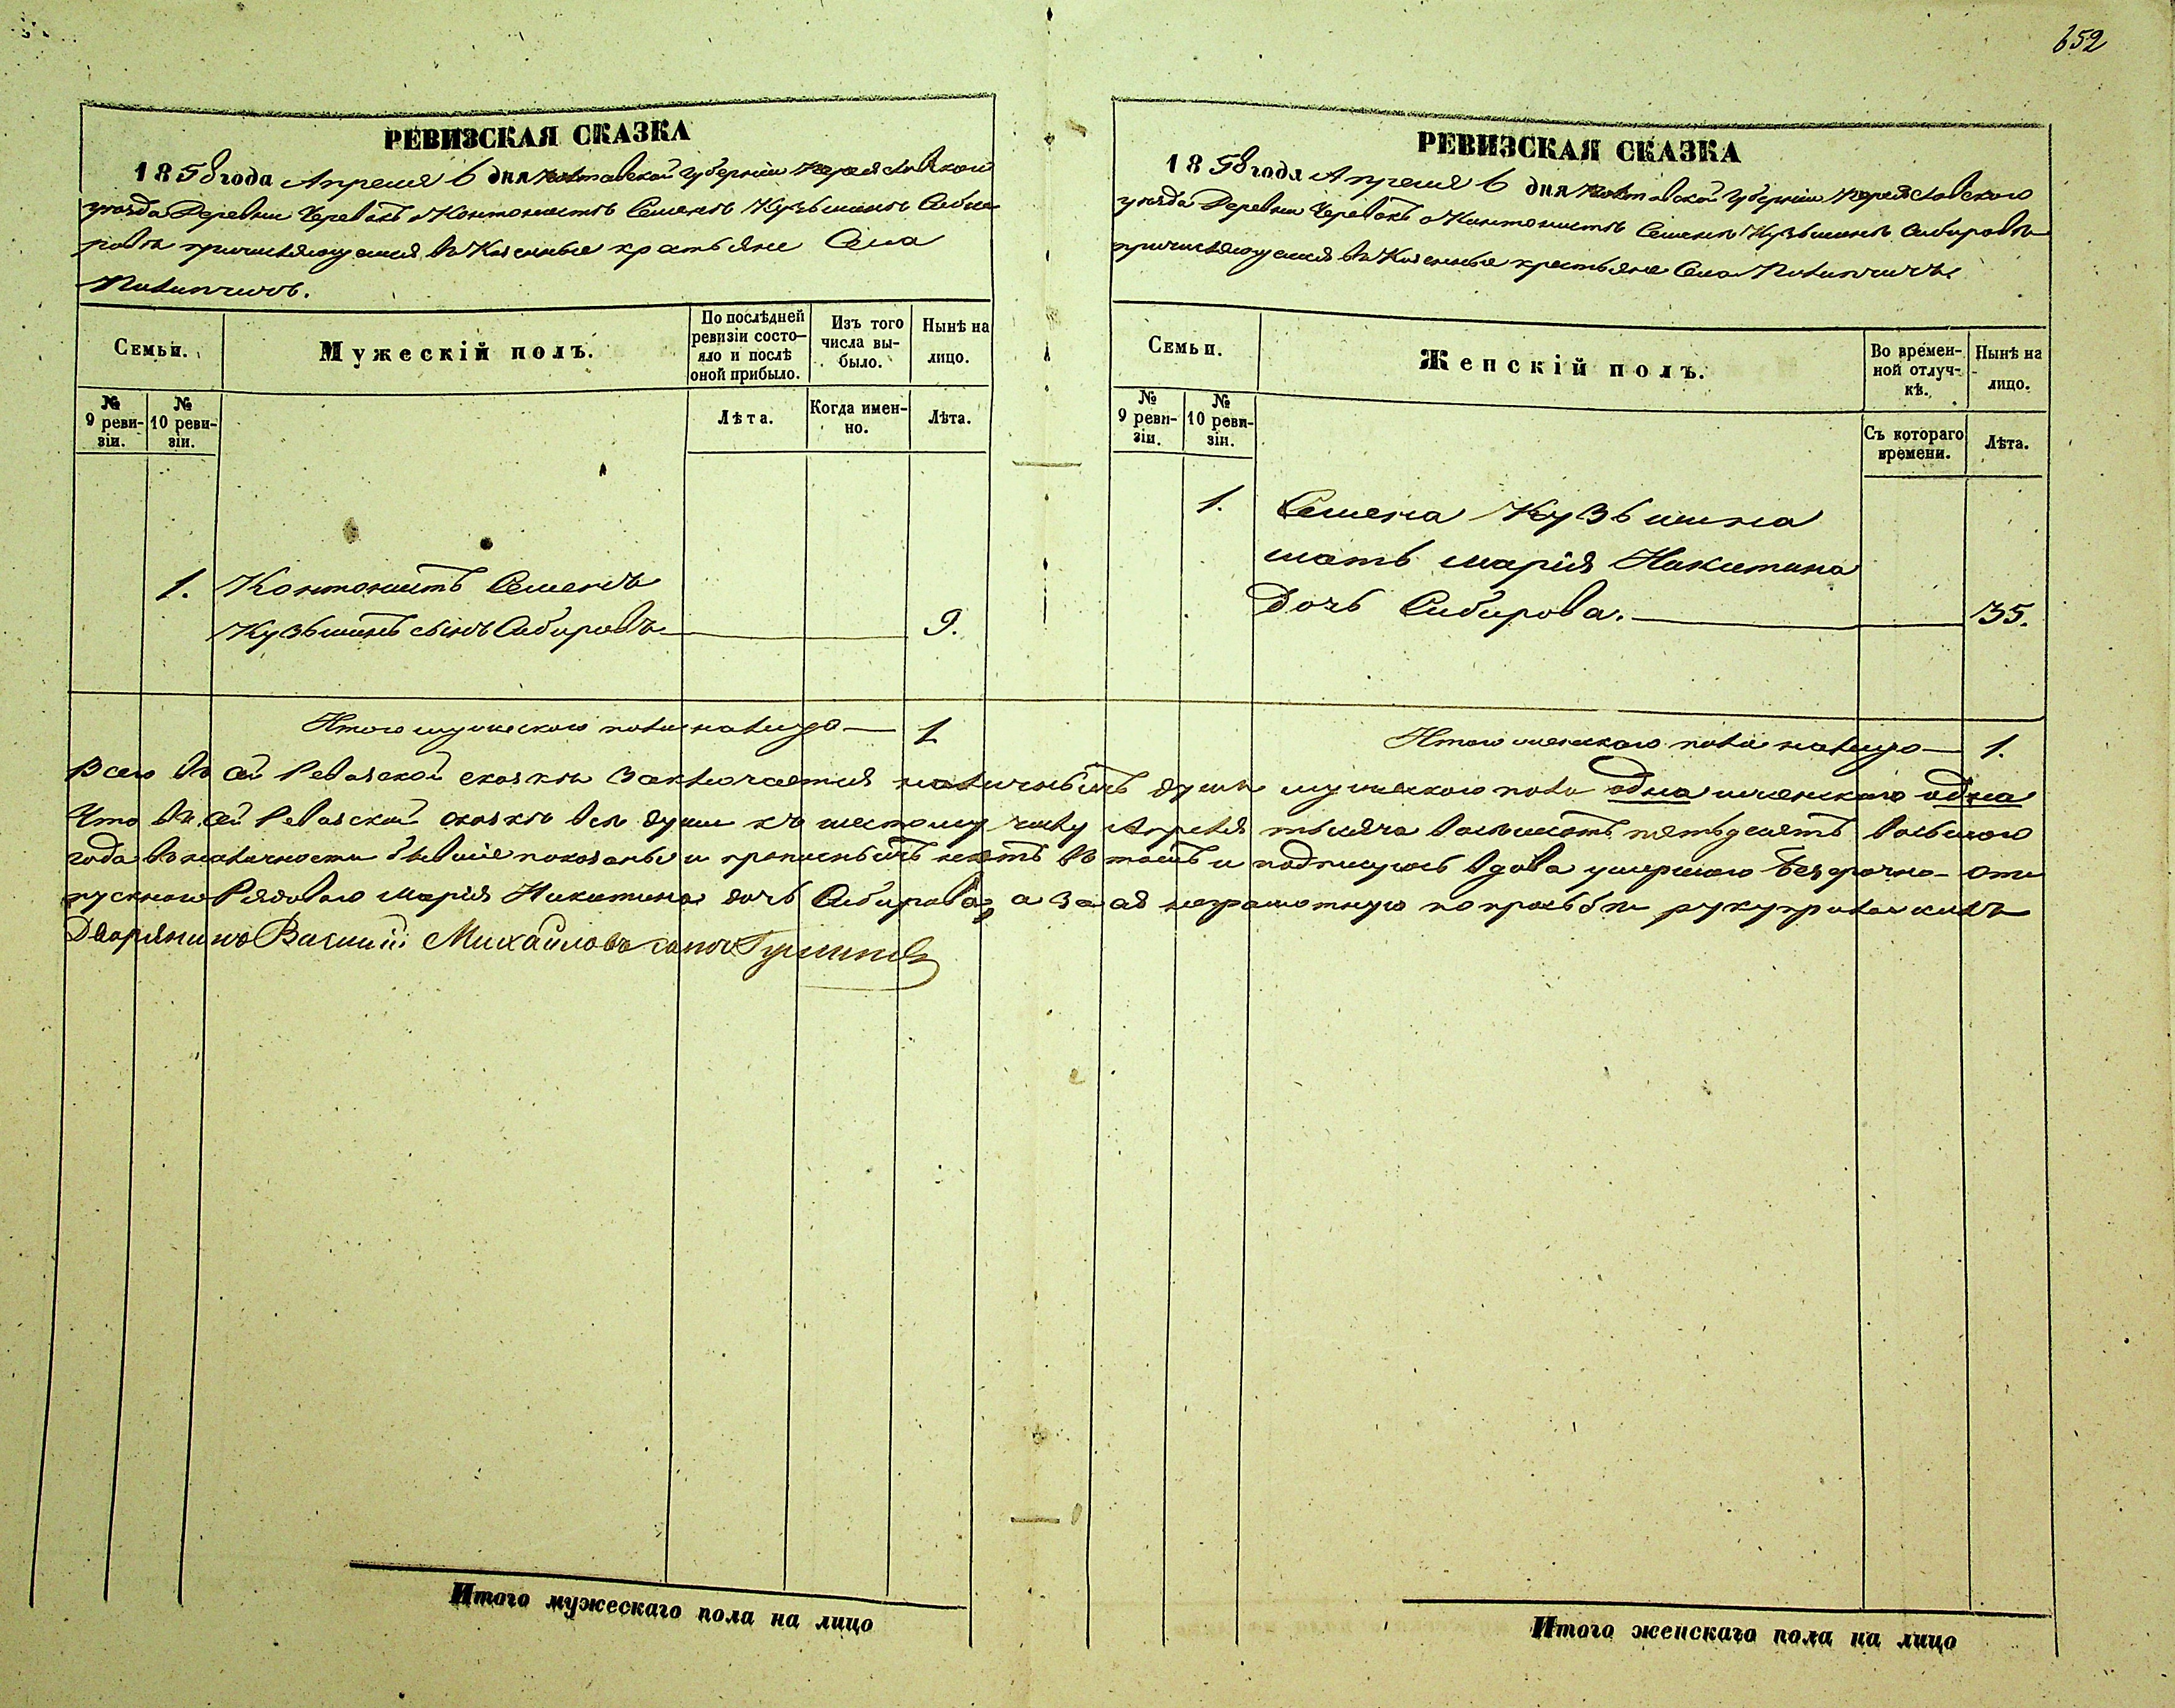 652
РЕВИЗСКАЯ СКАЗКА
1858 года Апреля 6 дня Полтавской Губерніи Переяславского
уезда Деревни Черевакъ о Кантонисте Семене Кузьмине Сиби
рове причисляющемся въ Казенные крестьяне Села
Семьи.
Мужескій полъ.
По послѣдней ревизіи состояло и послѣ оной прибыло.
Изъ того числа выбыло.
Нынѣ на лицо.
№ 9 ревизіи.
№ 10 ревизіи.
Лѣта.
Когда именно.
Лѣта.
1. Кантонистъ Семенъ
Кузьминъ сынъ Сибировъ 9.
Итого мужеского пола налицо — 1
РЕВИЗСКАЯ СКАЗКА
1858 года Апреля 6 дня Полтавской Губерніи Переяславского
уезда Деревни Черевакъ о Кантонисте Семене Кузьмине Сибирове
причисляющемся въ Казенные крестьяне Села
Семьи.
Женскій полъ.
Во временной отлучкѣ.
Нынѣ на лицо.
№ 9 ревизіи.
№ 10 ревизіи.
Съ котораго времени.
Лѣта.
1. Семена Кузьмина
мать Марія Никитина
дочь Сибирова. 35.
Итого женского пола налицо — 1.
Всего въ сей Ревизской сказке заключается наличныхъ душъ мужеского пола одна женского одна
Что въ сей Ревизской сказке все души къ шестому числу Апреля тысяча восемьсотъ пятьдесятъ восьмого
года въ наличности бывшіе показаны и прописныхъ нетъ въ томъ и подпишуюсь вдова умершого безсрочно-от
пускного Рядового Марія Никитина дочь Сибирова, а за ея неграмотную по прозьбе руку приложилъ
Дворянинъ Василий Михайловъ сынъ
Итого мужескаго пола на лицо
Итого женскаго пола на лицо